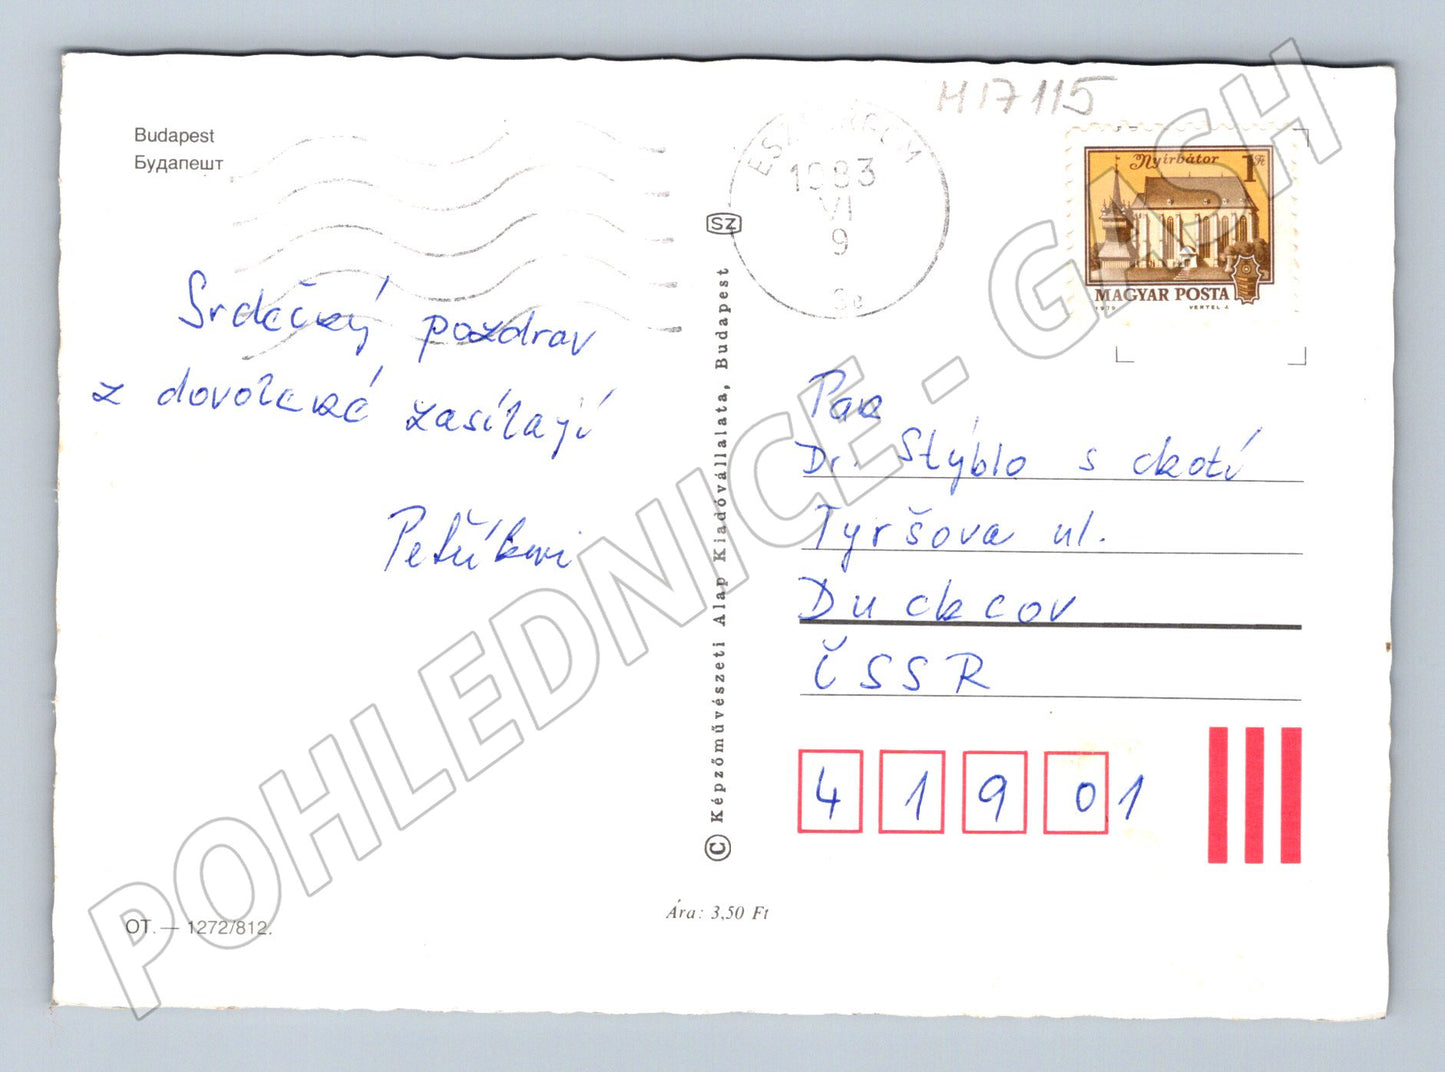 H17115
Budapest
Будапешт
1983
VI
9
Nyírbátor
1 Ft
MAGYAR POSTA
1979
VERTEL J.
SZ
Srdečný pozdrav
z dovolené zasílají
Petříkovi
Pan
Dr. Stýblo s chotí
Tyršova ul.
Duchcov
ČSSR
4 1 9 0 1
© Képzőművészeti Alap Kiadóvállalata, Budapest
Ára: 3,50 Ft
OT. — 1272/812.
POHLEDNICE - GASH